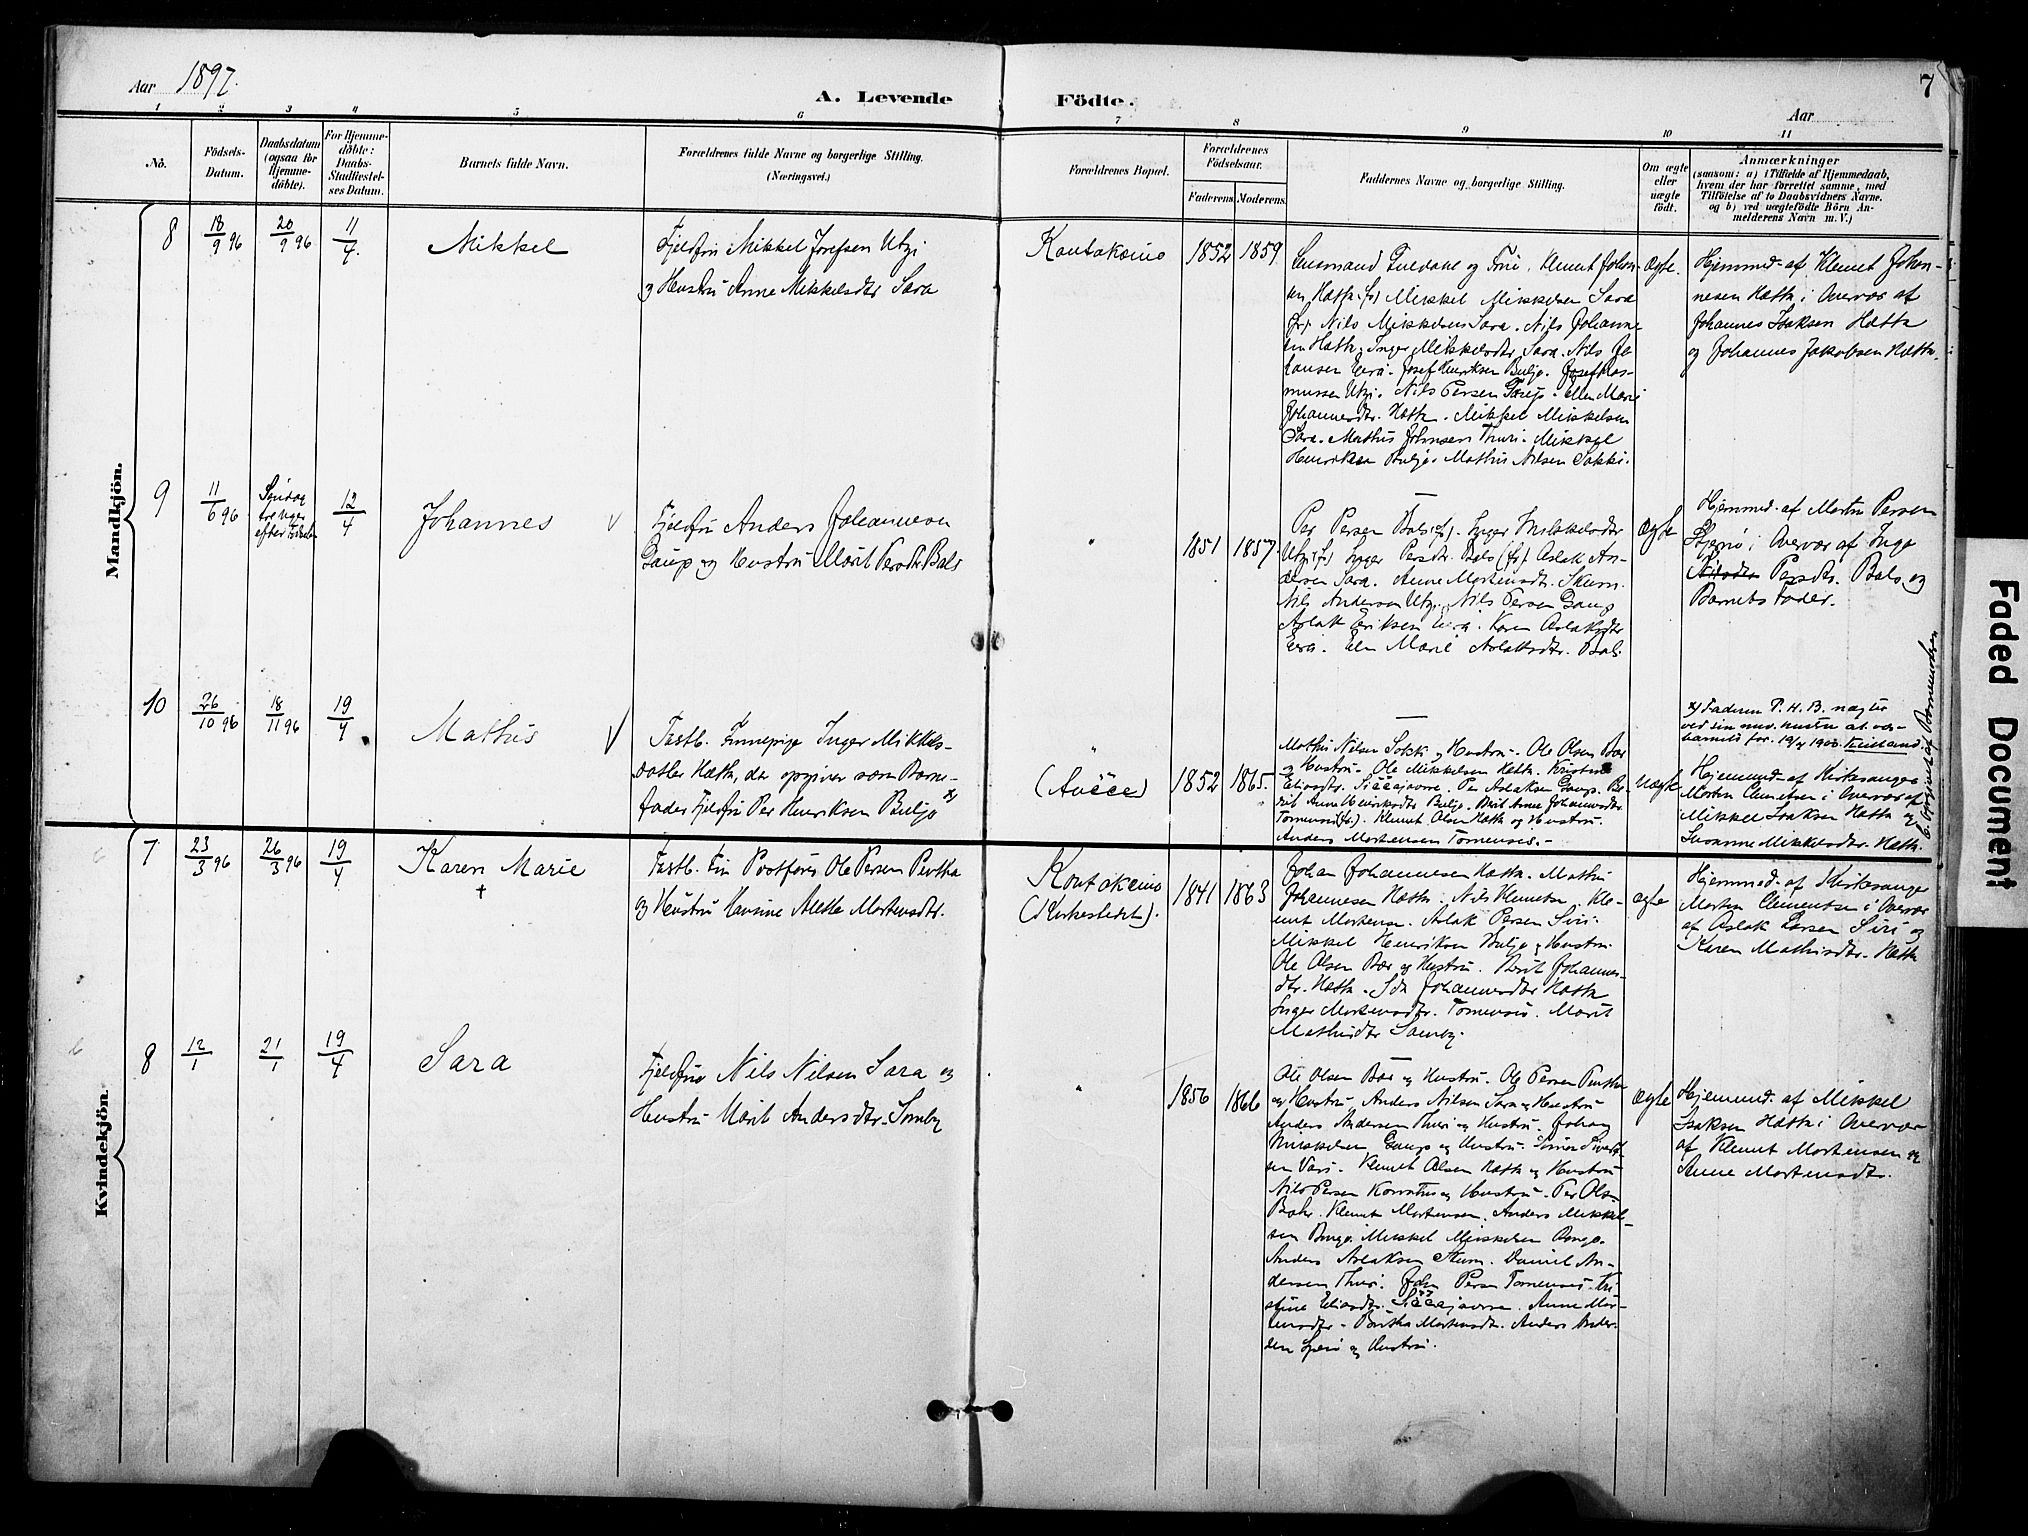 Aar 1897.
A. Levende
Födte.
Aar
7
1 2 3 4 5 6 7 8 9 10 11
Nò.
Födsels-
Datum.
Daabsdatum
(ogsaa for
Hjemme-
döbte).
For Hjemme-
döbte:
Daabs-
Stadfæstel-
ses Datum.
Barnets fulde Navn.
Forældrenes fulde Navne og borgerlige Stilling.
(Næringsvei.)
Forældrenes Bopæl.
Forældrenes
Födselsaar.
Faderens. Moderens.
Faddernes Navne og borgerlige Stilling.
Om ægte
eller
uægte
födt.
Anmærkninger
(saasom: a) i Tilfælde af Hjemmedaab,
hvem der har forrettet samme, med
Tilföielse af to Daabsvidners Navne.
og b) ved uægtefödte Börn An-
melderens Navn m. V.)
Mandkjön.
8
18/9 96
20/9 96
11/4
Mikkel
Fjeldfin Mikkel Josefsen Utzi
og Hustru Anne Mikkelsdtr Sara
Kautokeino
1852
1859
Lensmand Fuedahl og Frue. Klemet Johan-
sen Hætta (fr) Mikkel Mikkelsen Sara
(fr). Nils Mikkelsen Sara. Nils Johanne-
sen Hætta, Inger Mikkelsdtr Sara. Nils Jo-
hansen Eira. Josef Henriksen Buljo. Josef Ras-
mussen Utzi. Nils Persen Gaup. Ellen Marie
Johannesdtr. Hætta. Mikkel Mikkelsen
Sara. Mathis Johnsen Thuri. Mikkel
Henriksen Buljo. Mathis Nilsen Sokki.
Ægte.
Hjemmed. af Klemet Johan-
nesen Hætta i Overvær af
Johannes Isaksen Hætta
og Johannes Jakobsen Hætta.
9
11/6 96
Søndag
tre uger
efter Fødselen
12/4
Johannes
Fjeldfin Anders Johannesen
Gaup og Hustru Marit Persdtr. Bals
"
1851
1857.
Per Persen Bals (f). Inger Mikkelsdtr
Utzi (f) Inger Persdtr. Bals (fr) Aslak An-
dersen Sara. Anne Mortensdtr. Skum.
Nils Andersen Utzi. Nils Persen Gaup
Aslak Eriksen Eira. Karen Aslaksdtr
Eira. Elen Marie Aslaksdtr. Bals.
Ægte
Hjemmed. af Morten Persen
i Overvær af Inge
Persdtr. Bals og
Barnets Fader.
10
26/10 96
18/11 96
19/4
Mathis
Fastb. Finnepige Inger Mikkels-
datter Hætta, der opgiver som Barne-
fader Fjeldfin Per Henriksen Buljo x)
"
(Avčče)
1852
1865.
Mathis Nilsen Sokk og Hustru. Ole Olsen Bær
og Hustru. Ole Mikkelsen Hætta. Kristine
Eliasdtr. Siččajavre. Per Aslaksen Gaup. Be-
rit Anne Henriksdtr Buljo. Berit Anne Johannesdtr
Tornensis (fr). Klemet Olsen Hætta og Hustru.
Anders Mortensen Tornensis.
Uægte
x) Faderen P. H. B. nægter
ved sin nuv. hustru at være
barnets far. 19/4 1900.
Hjemmed. af Kirkesanger
Morten Clemetsen i Overvær af
Mikkel Isaksen Hætta og
Susanne Mikkelsdtr. Hætta.
b. opgivet af Barnemoderen
Kvindekjön.
7
23/3 96
26/3 96
19/4
Karen Marie
†
Fastb. Fin Postfører Ole Persen Pentha
og Hustru Hansine Alette Mortensdtr.
Kautokeino
(Kirkestedet).
1841
1863
Johan Johannesen Hætta. Mathis
Johannesen Hætta. Nils Klemetsen. Kle-
met Mortensen. Aslak Persen Siri.
Mikkel Henriksen Buljo og Hustru.
Ole Olsen Bær og Hustru. Berit Johannes-
dtr. Hætta. Ida Johannesdtr Hætta
Inger Mortensdtr. Tornensis. Marit
Mathisdtr Somby.
Ægte
Hjemmed. af Kirkesanger
Morten Clementsen i Overvær
af Aslak Larsen Siri og
Karen Mathisdtr. Hætta
8
12/1
21/1
19/4
Sara
Fjeldfin Nils Nilsen Sara og
Hustru Marit Andersdtr. Somby
"
1856
1866
Ole Olsen Bær og Hustru. Ole Persen Pentha
og Hustru Anders Nilsen Sara og Hustru
Anders Andersen Thuri og Hustru. Johan
Mikkelsen Gaup og Hustru. Simon Sivert-
sen Vars. Klemet Olsen Hætta og Hustru
Nils Persen og Hustru. Per Olsen
Bahr. Klemet Mortensen. Anders Mikkel-
sen Bongo. Mikkel Mikkelsen Bongo.
Anders Aslaksen Skum. Daniel An-
dersen Thuri. John Persen Tornensis. Kri-
stine Eliasdtr. Siččajavre. Anne Mor-
tensdtr. Martha Mortensdtr. Anders Ander-
sen og Hustru.
Ægte
Hjemmed. af Mikkel
Isaksen Hætta i Overvær
af Klemet Mortensen og
Anne Mortensdtr.
Faded Document